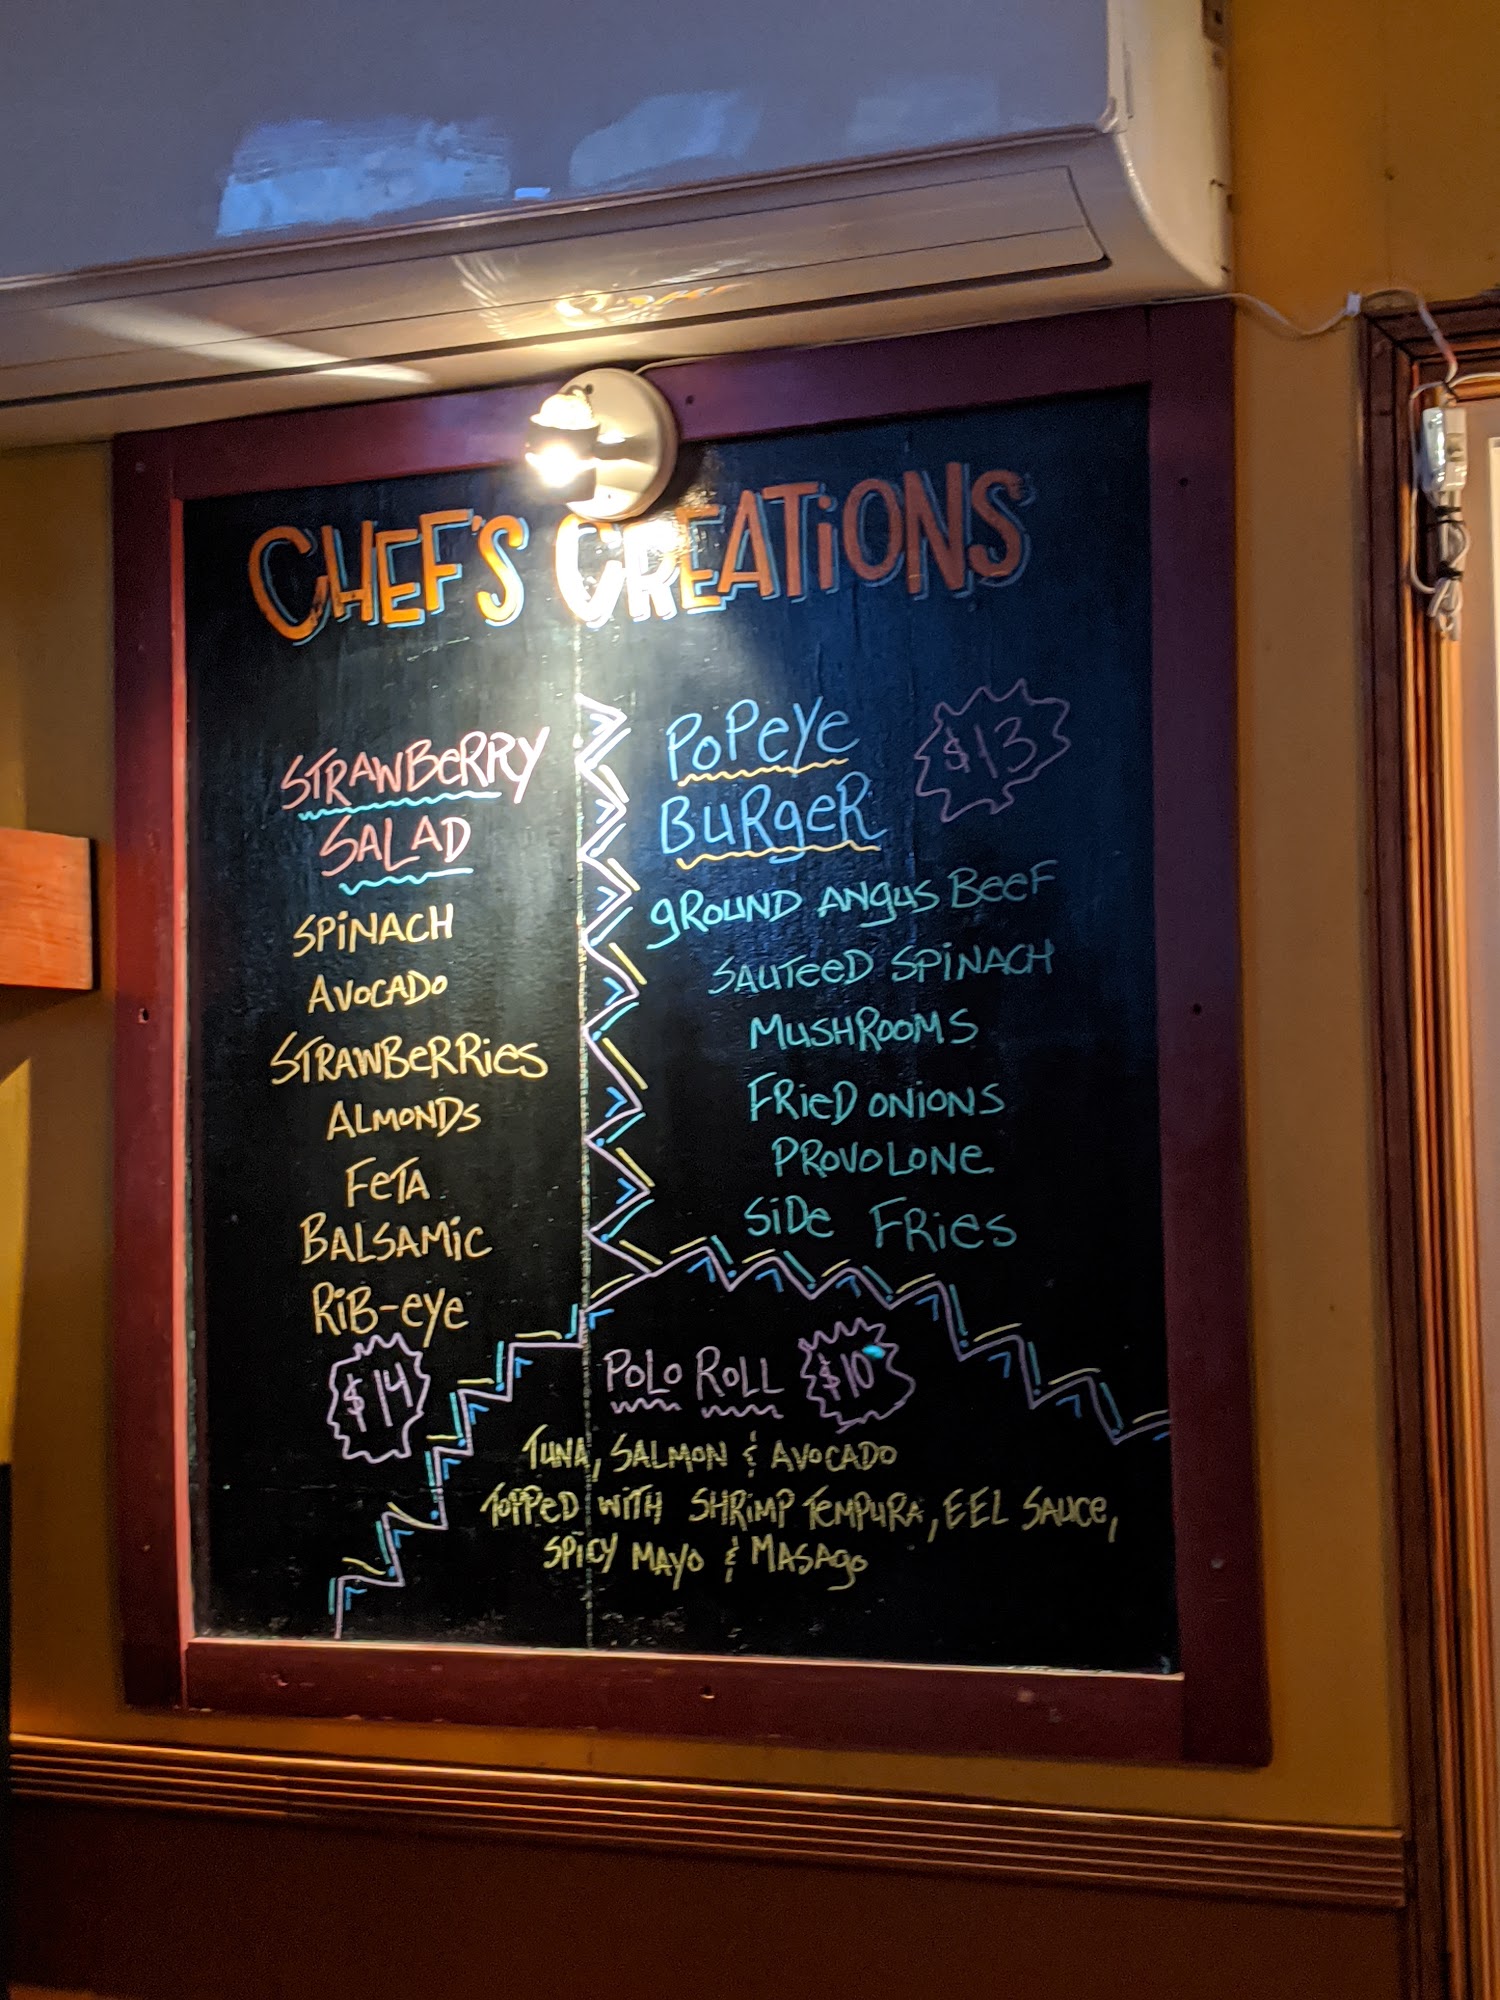 CHEF'S CREATIONS
STRAWBERRY
SALAD
SPINACH
AVOCADO
STRAWBERRIES
ALMONDS
FETA
BALSAMIC
RIB-EYE
$14
POPEYE
BURGER
$13
GROUND ANGUS BEEF
SAUTEED SPINACH
MUSHROOMS
FRIED ONIONS
PROVOLONE
SIDE FRIES
POLO ROLL $10
TUNA, SALMON & AVOCADO
TOPPED WITH SHRIMP TEMPURA, EEL SAUCE,
SPICY MAYO & MASAGO